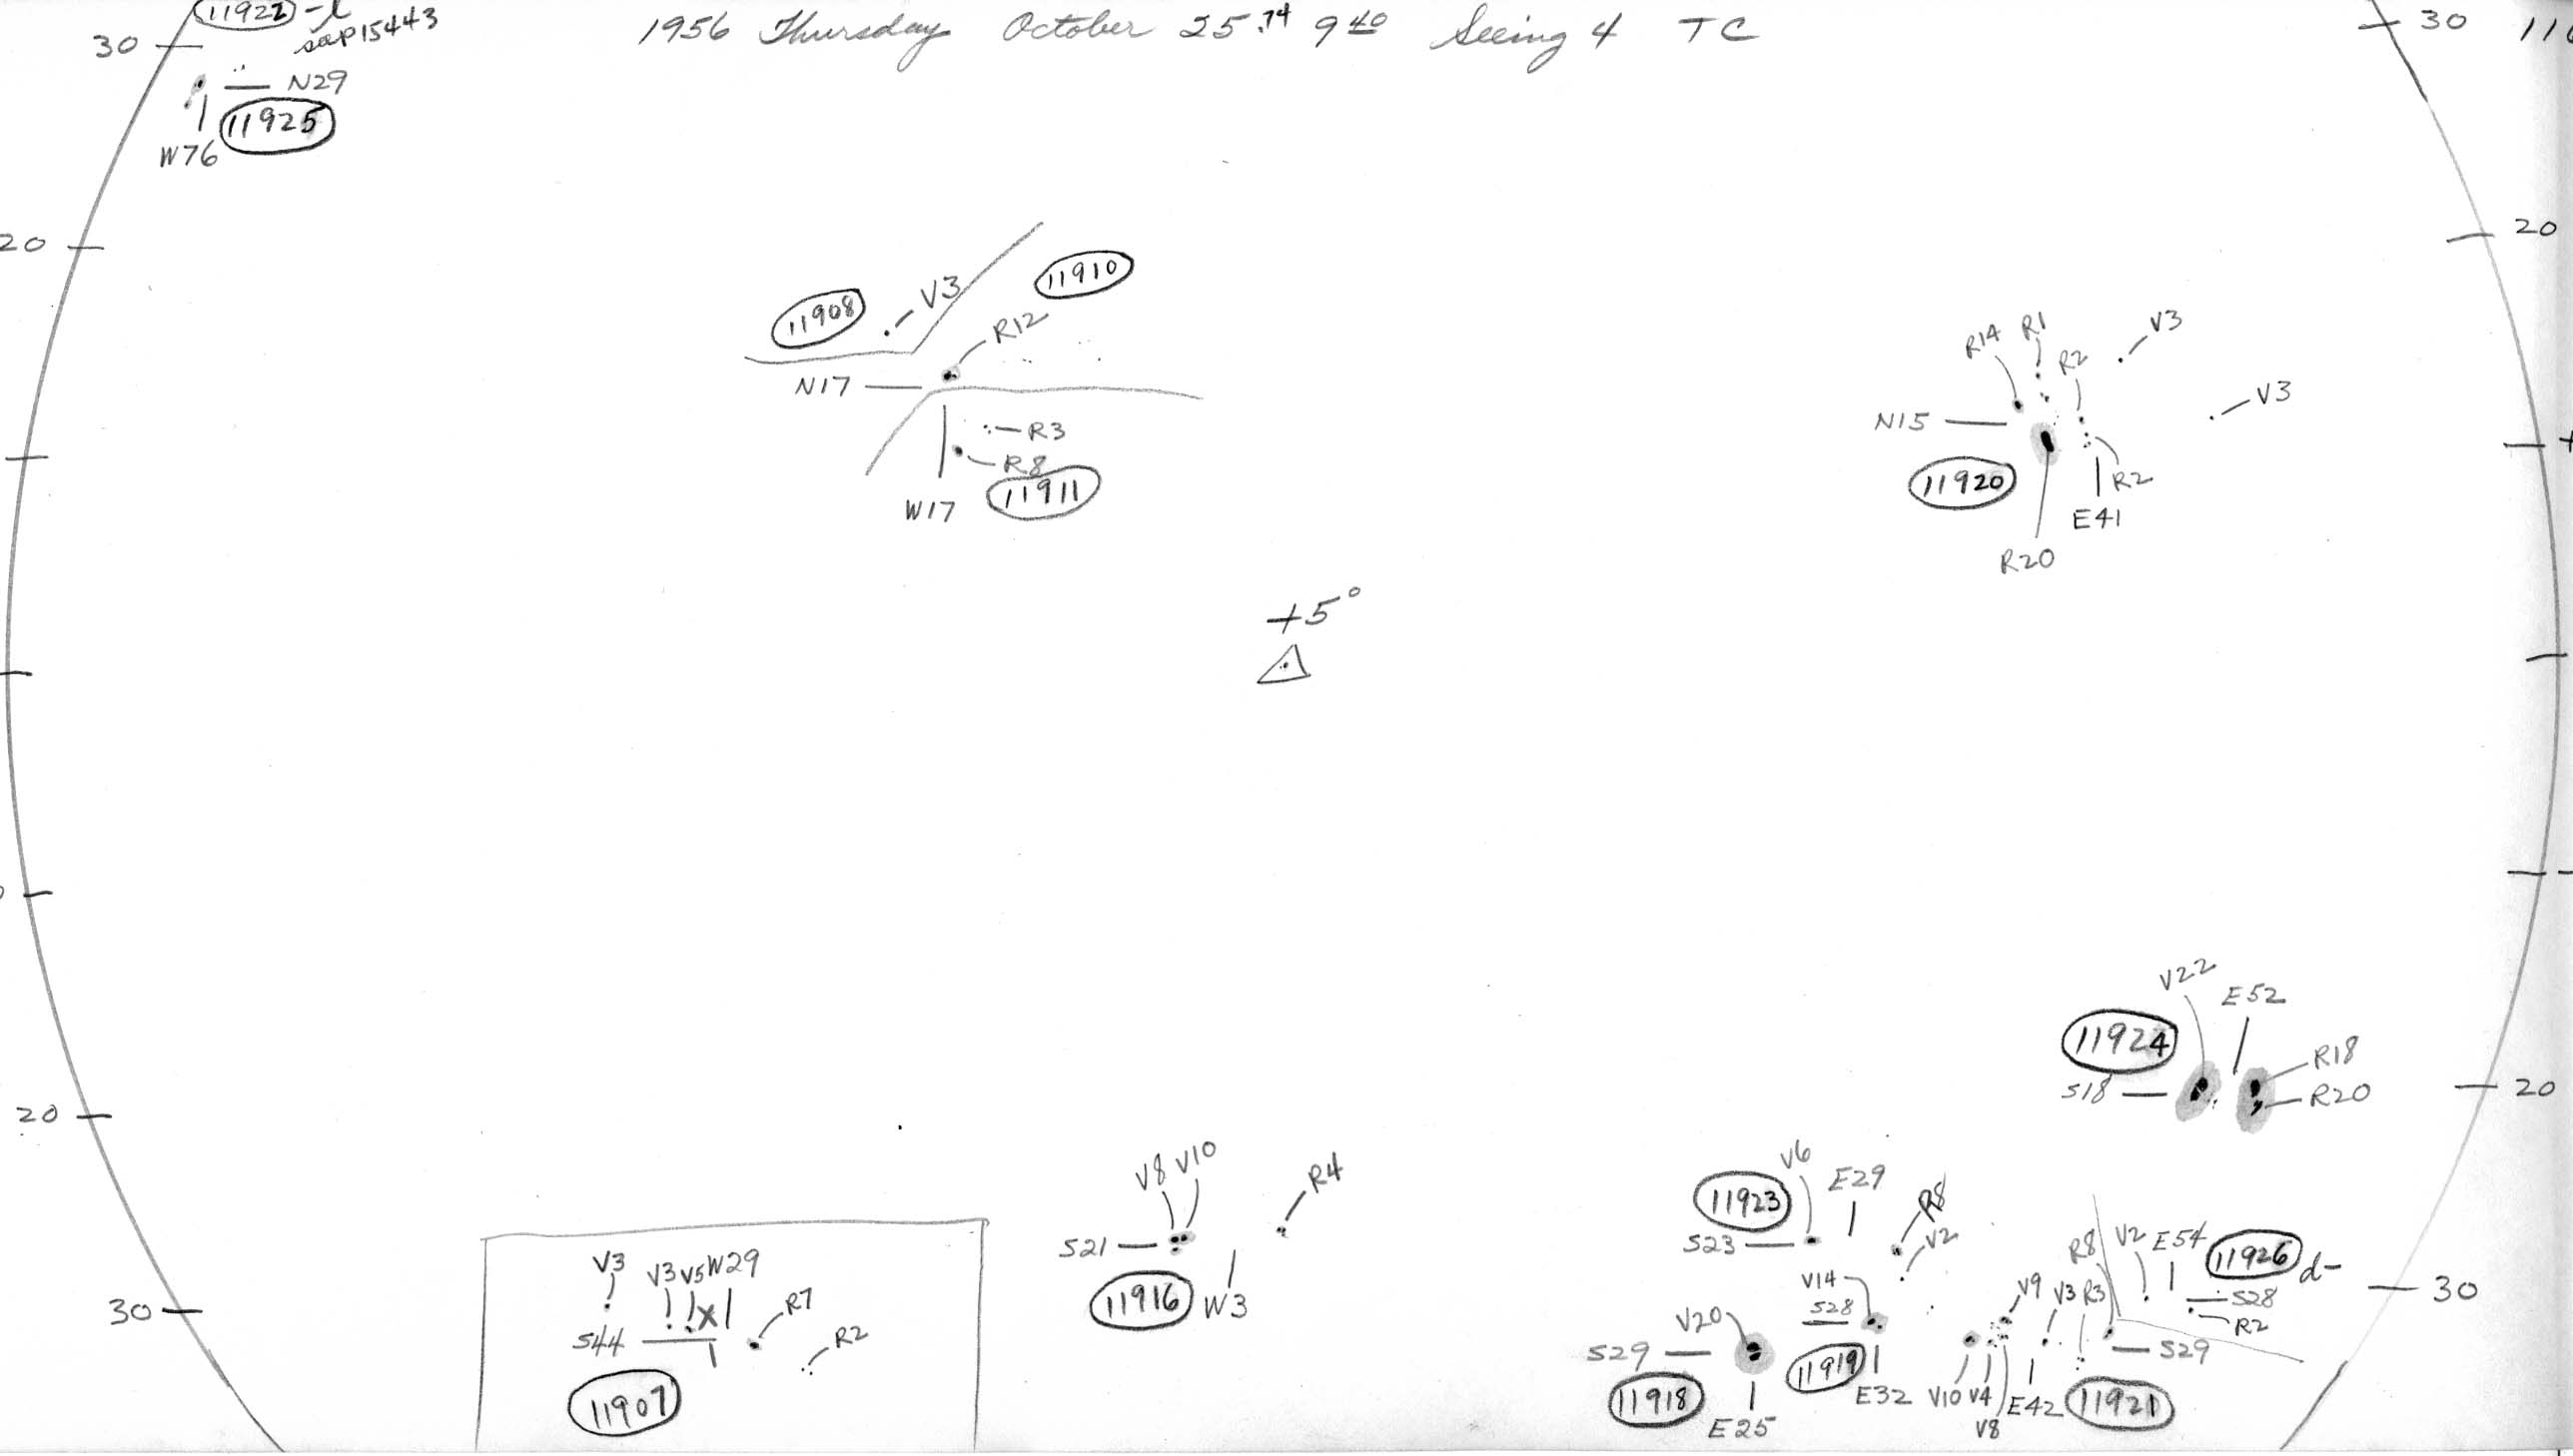 11922 -l
sap 15443
1956 Thursday October 25.74 9 40 Seeing 4 TC
30
30
N29
11925
W76
20
20
11908
V3
11910
R12
N17
R3
R8
11911
W17
R14
R1
R2
V3
V3
N15
11920
R2
E41
R20
+5°
V22
E52
11924
R18
S18
R20
20
20
V8 V10
R4
S21
11916
W3
V6
11923
E29
R8
S23
V2
V14
S28
V20
S29
11919
11918
E32
E25
V9
V3 R3
R8
V2
E54
11926 d-
S28
R2
S29
V10 V4
V8
E42
11921
30
30
V3
V3 V5 W29
X
R7
R2
S44
11907